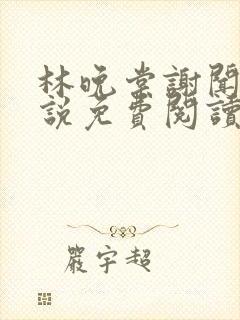 林晚棠謝聞
說免費閱讀
嚴宇超